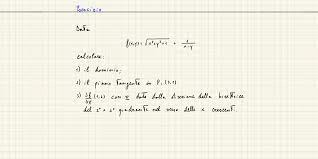 Esercizio
Data
f(x,y) = √(x²+y²-1) + 1/(x-y)
calcolare:
1) il dominio;
2) il piano tangente in P
3) ∂f/∂v con v dato dalla direzione della bisettrice
del 1° e 3° quadrante nel verso delle x crescenti.